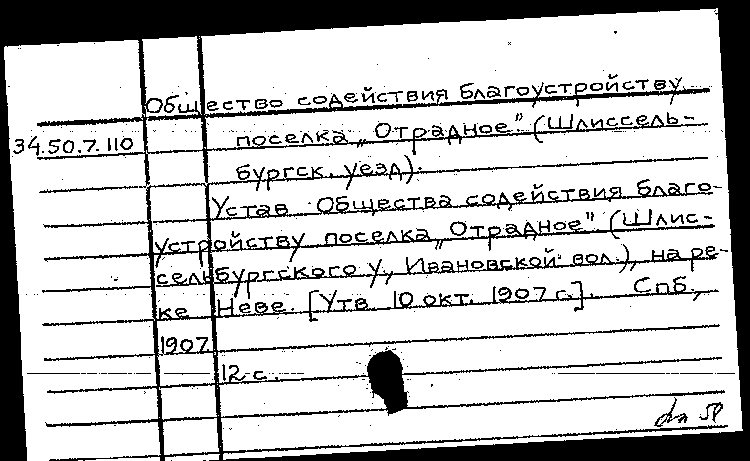 Общество содействия благоустройству
34.50.7.110
поселка „Отрадное" (Шлиссель-
бургск. уезд).
Устав Общества содействия благо-
устройству поселка „Отрадное" (Шлис-
сельбургского у., Ивановской вол.), на ре-
ке Неве. [Утв. 10 окт. 1907 г.]. Спб.,
1907
12 с.